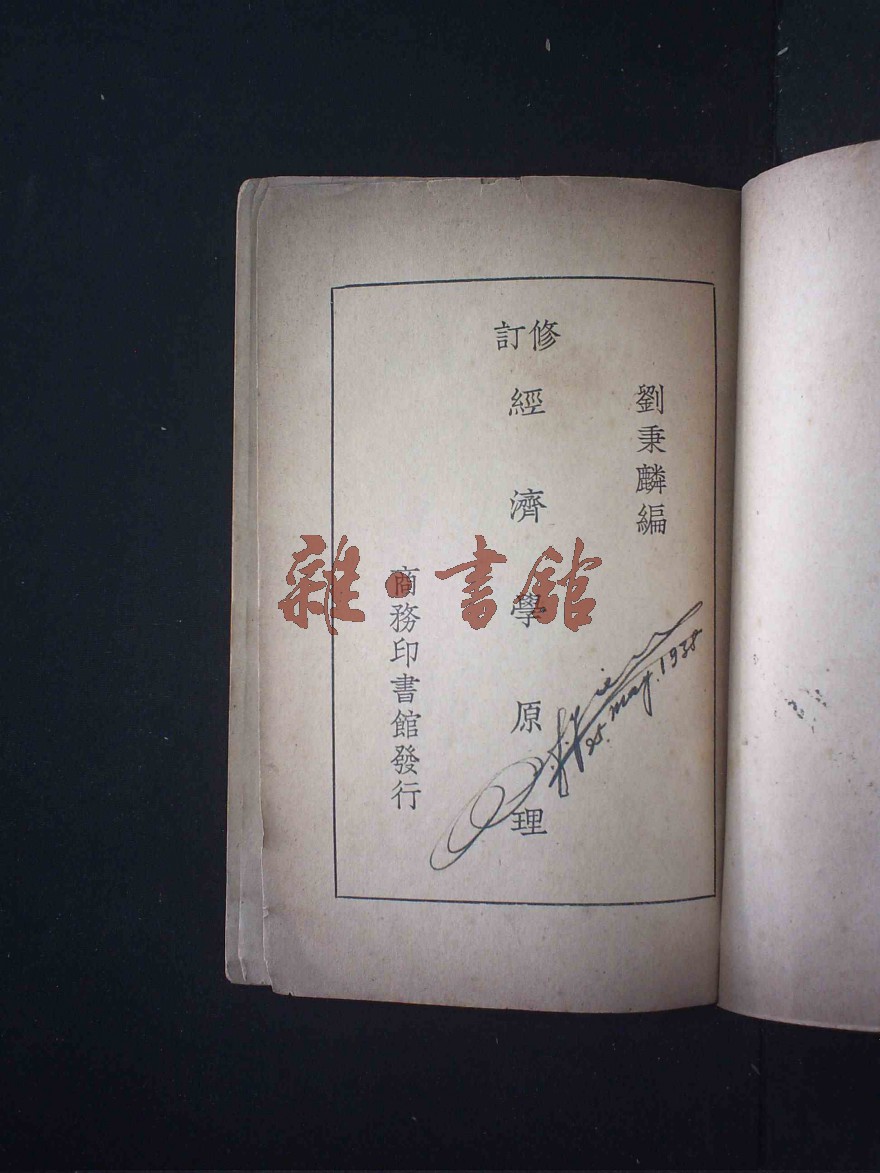 劉秉麟編
修訂
經濟學原理
商務印書館發行
25. May. 1938
雜·書館